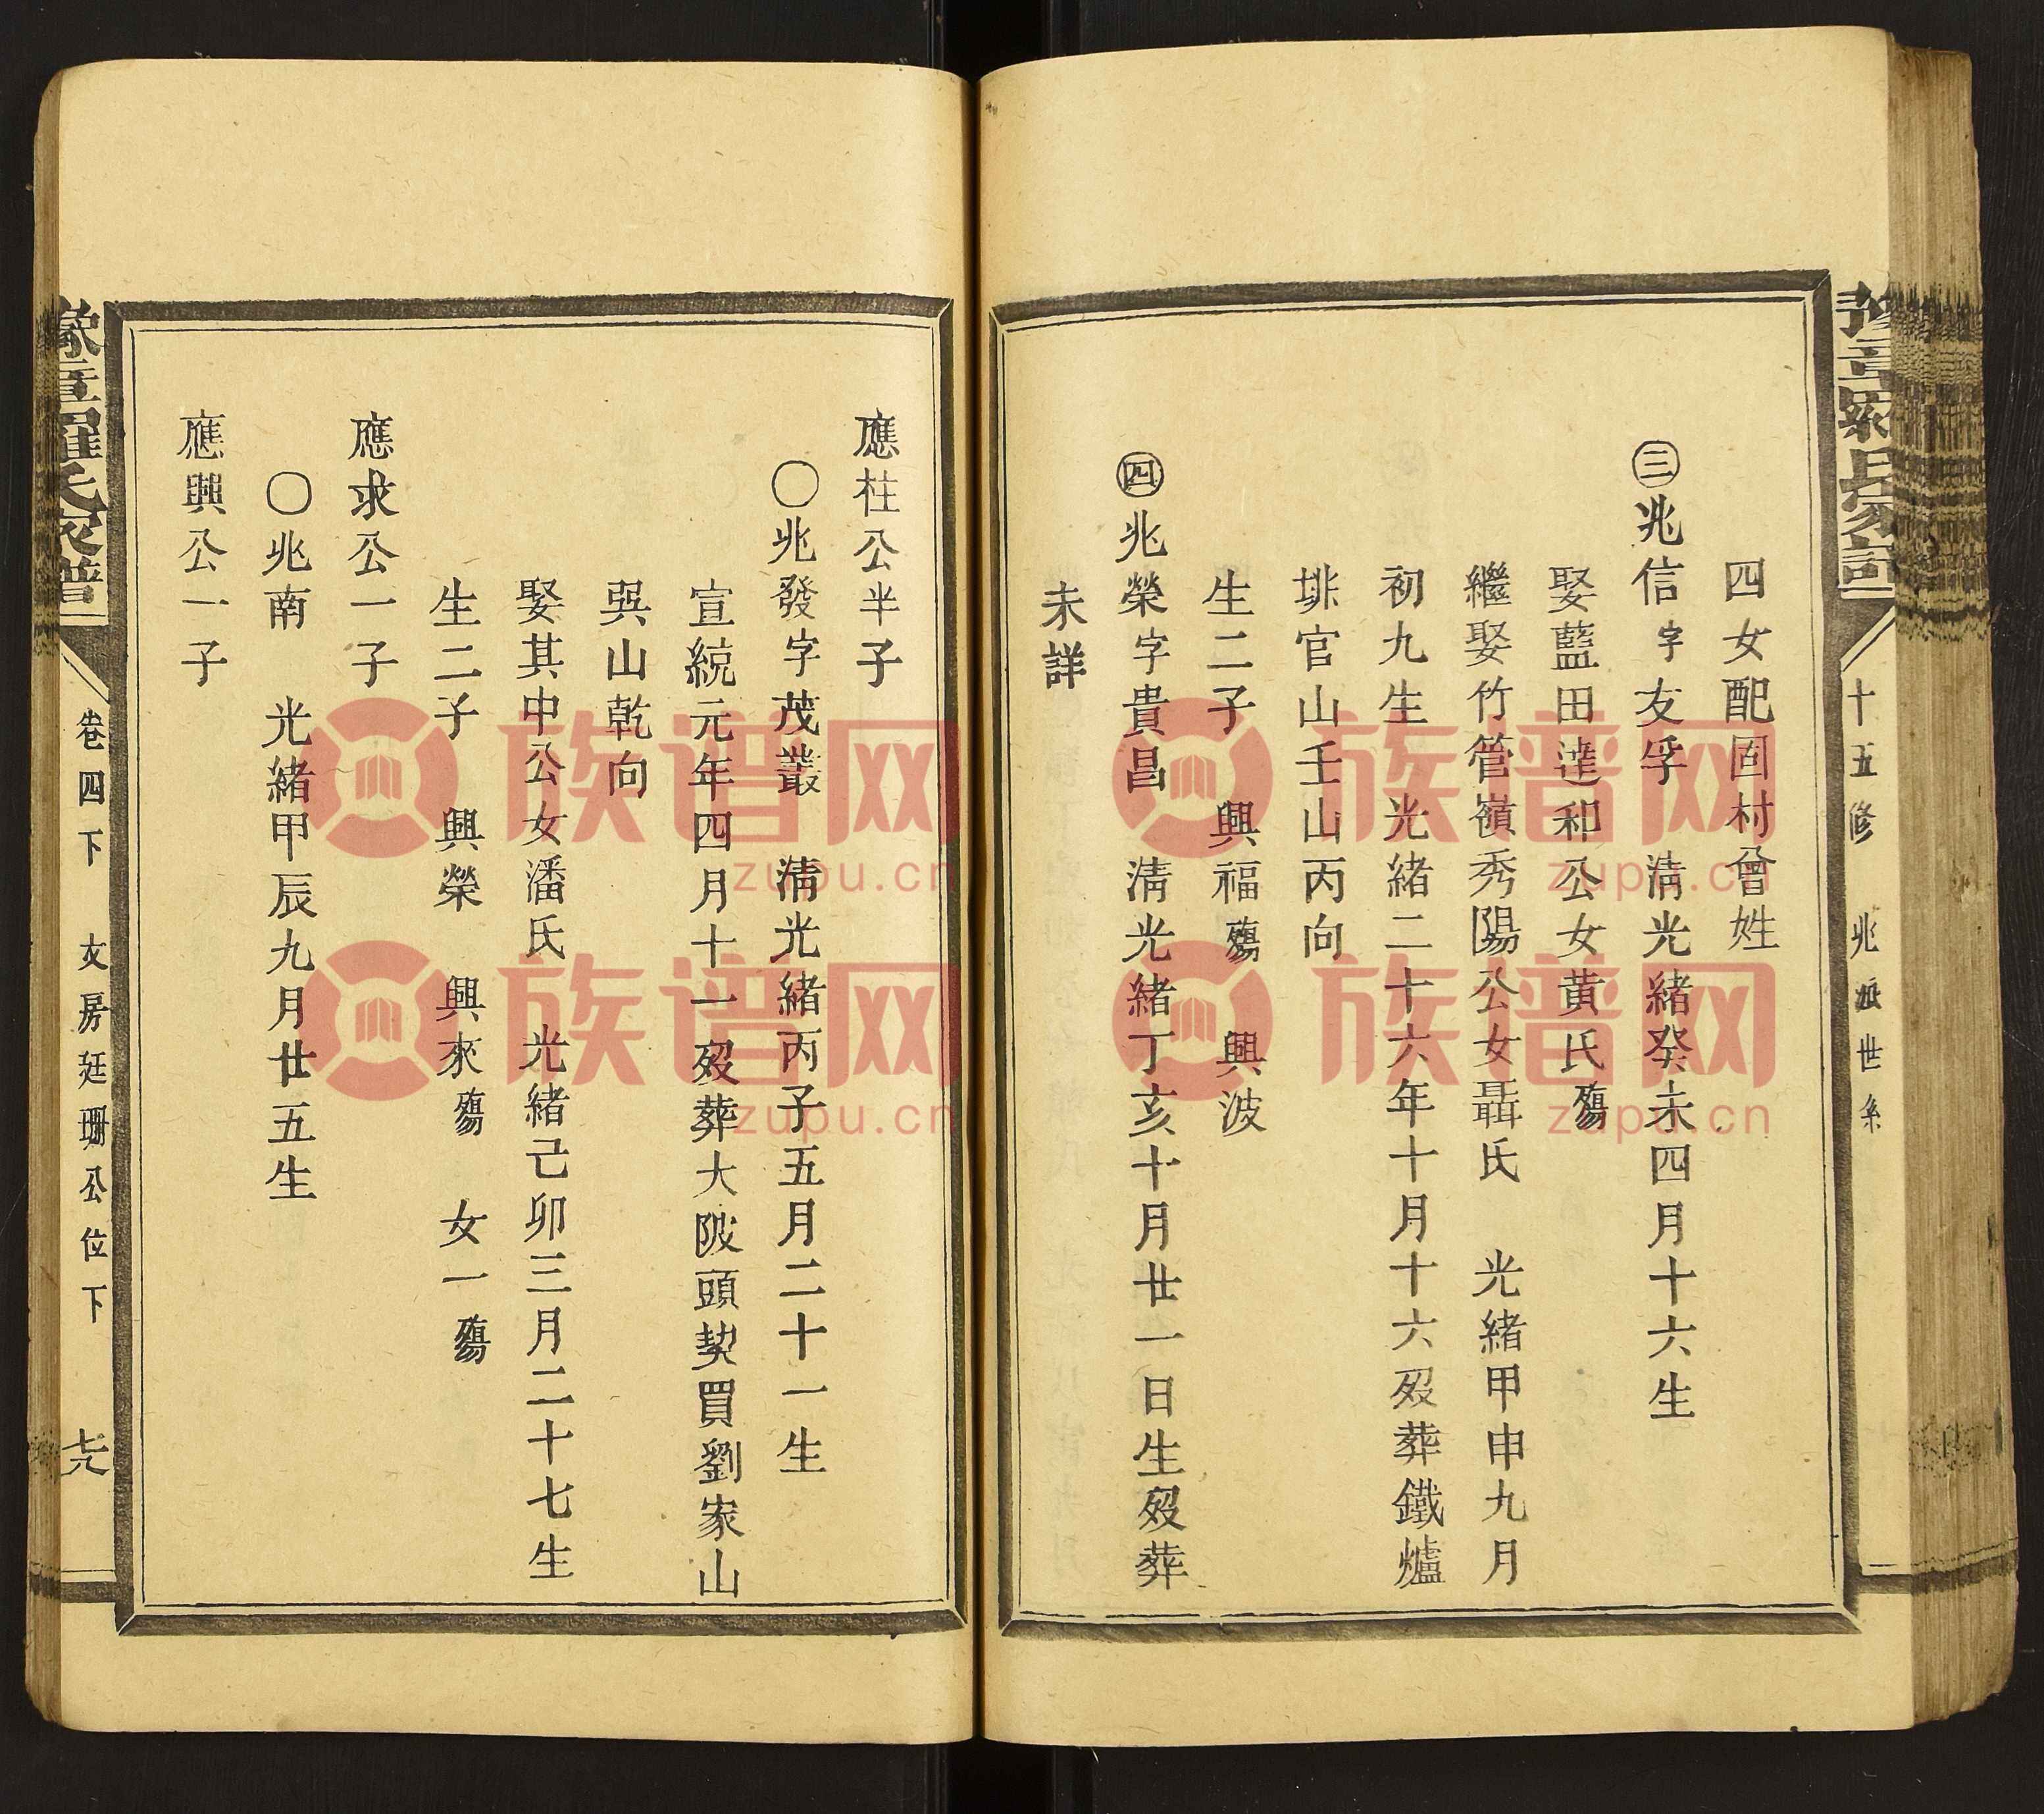 豫章羅氏家譜
十五修 兆派世系
四女配固村曾姓
㊂兆信字友孚 清光緒癸未四月十六生
娶藍田達和公女黃氏殤
繼娶竹管嶺秀陽公女聶氏 光緒甲申九月
初九生 光緒二十六年十月十六歿葬鐵爐
排官山壬山丙向
生二子 興福殤 興波
㊃兆榮字貴昌 清光緒丁亥十月廿一日生歿葬
未詳
應柱公半子
〇兆發字茂叢 清光緒丙子五月二十一生
宣統元年四月十一歿葬大陂頭契買劉家山
巽山乾向
娶其中公女潘氏 光緒己卯三月二十七生
生二子 興榮 興來殤 女一殤
應求公一子
〇兆南 光緒甲辰九月廿五生
應興公一子
豫章羅氏家譜
卷四下 文房廷珊公位下
族谱网
zupu.cn
族谱网
zupu.cn
族谱网
zupu.cn
族谱网
zupu.cn